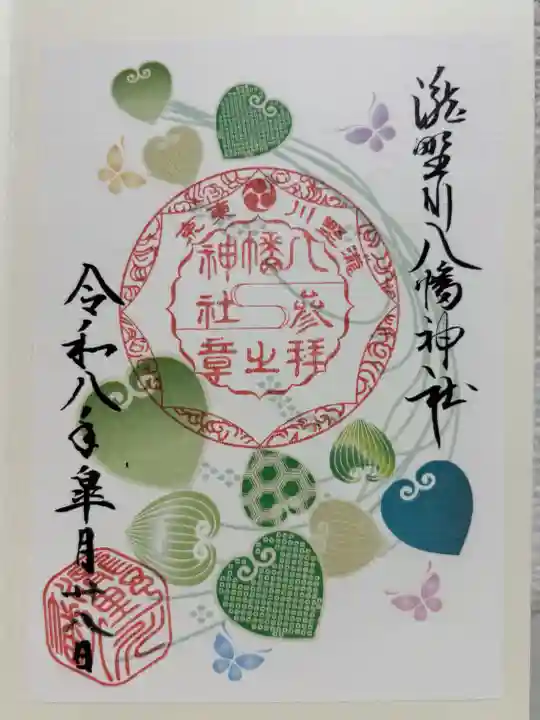 滝野川八幡神社
東京 滝野川
八幡神社参拝之章
令和八年皐月廿八日